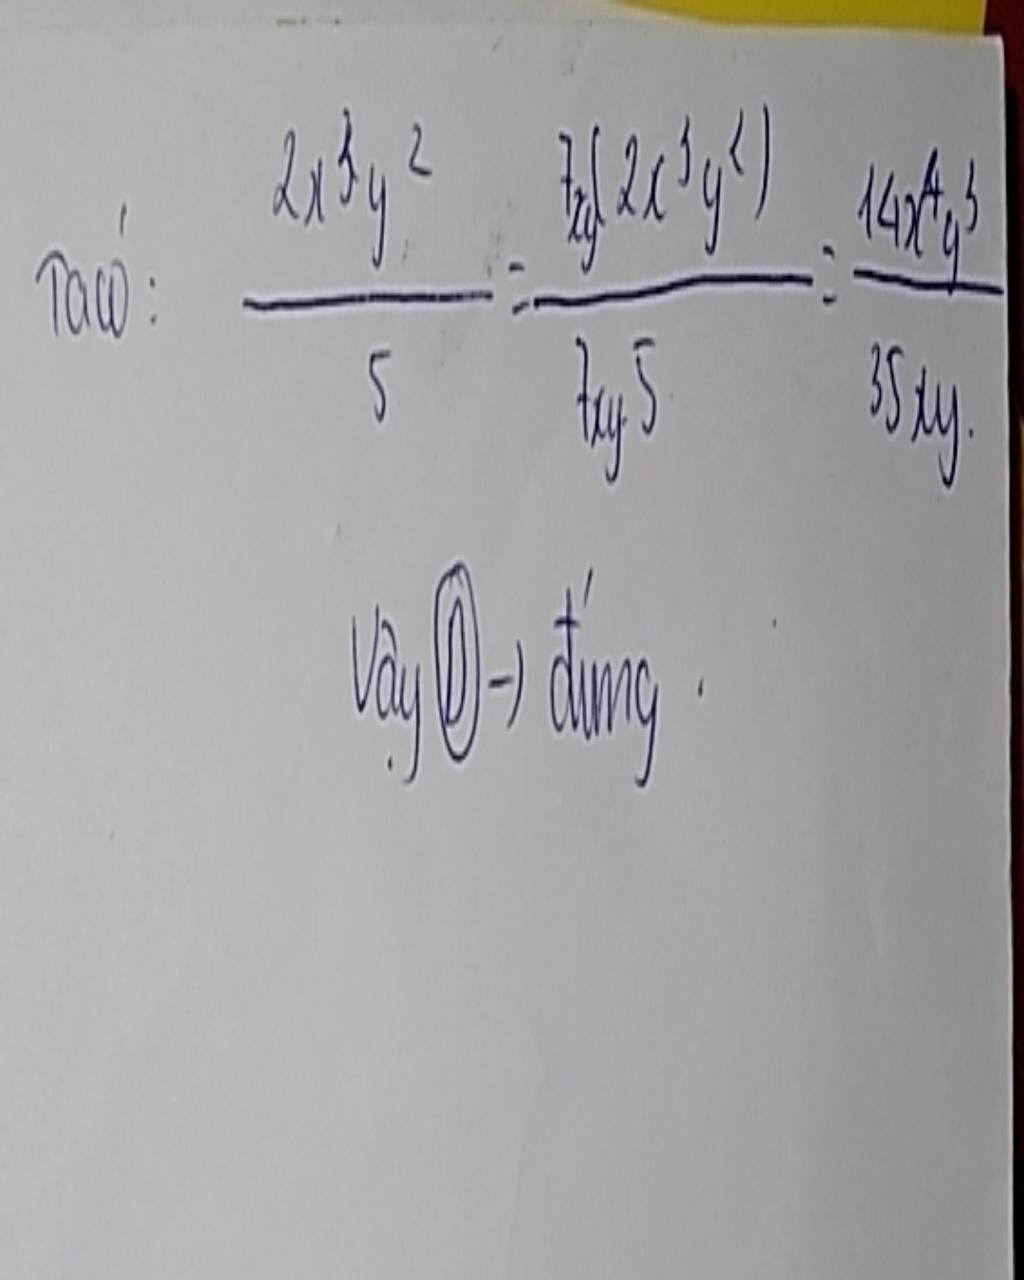 Ta có: 2x³y² / 5 = 7xy(2x³y²) / 7xy.5 = 14x⁴y³ / 35xy.
Vậy D → đúng.